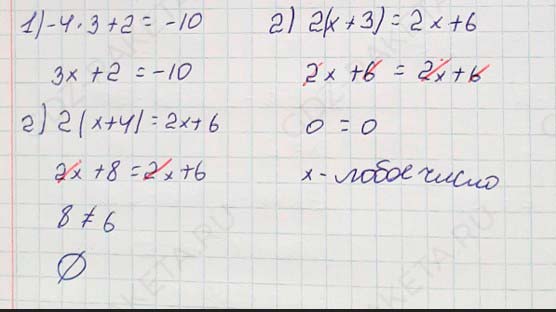 1) -4·3+2 = -10
3x+2 = -10
2) 2(x+4) = 2x+6
2x+8 = 2x+6
8 ≠ 6
∅
2) 2(x+3) = 2x+6
2x+6 = 2x+6
0 = 0
x - любое число